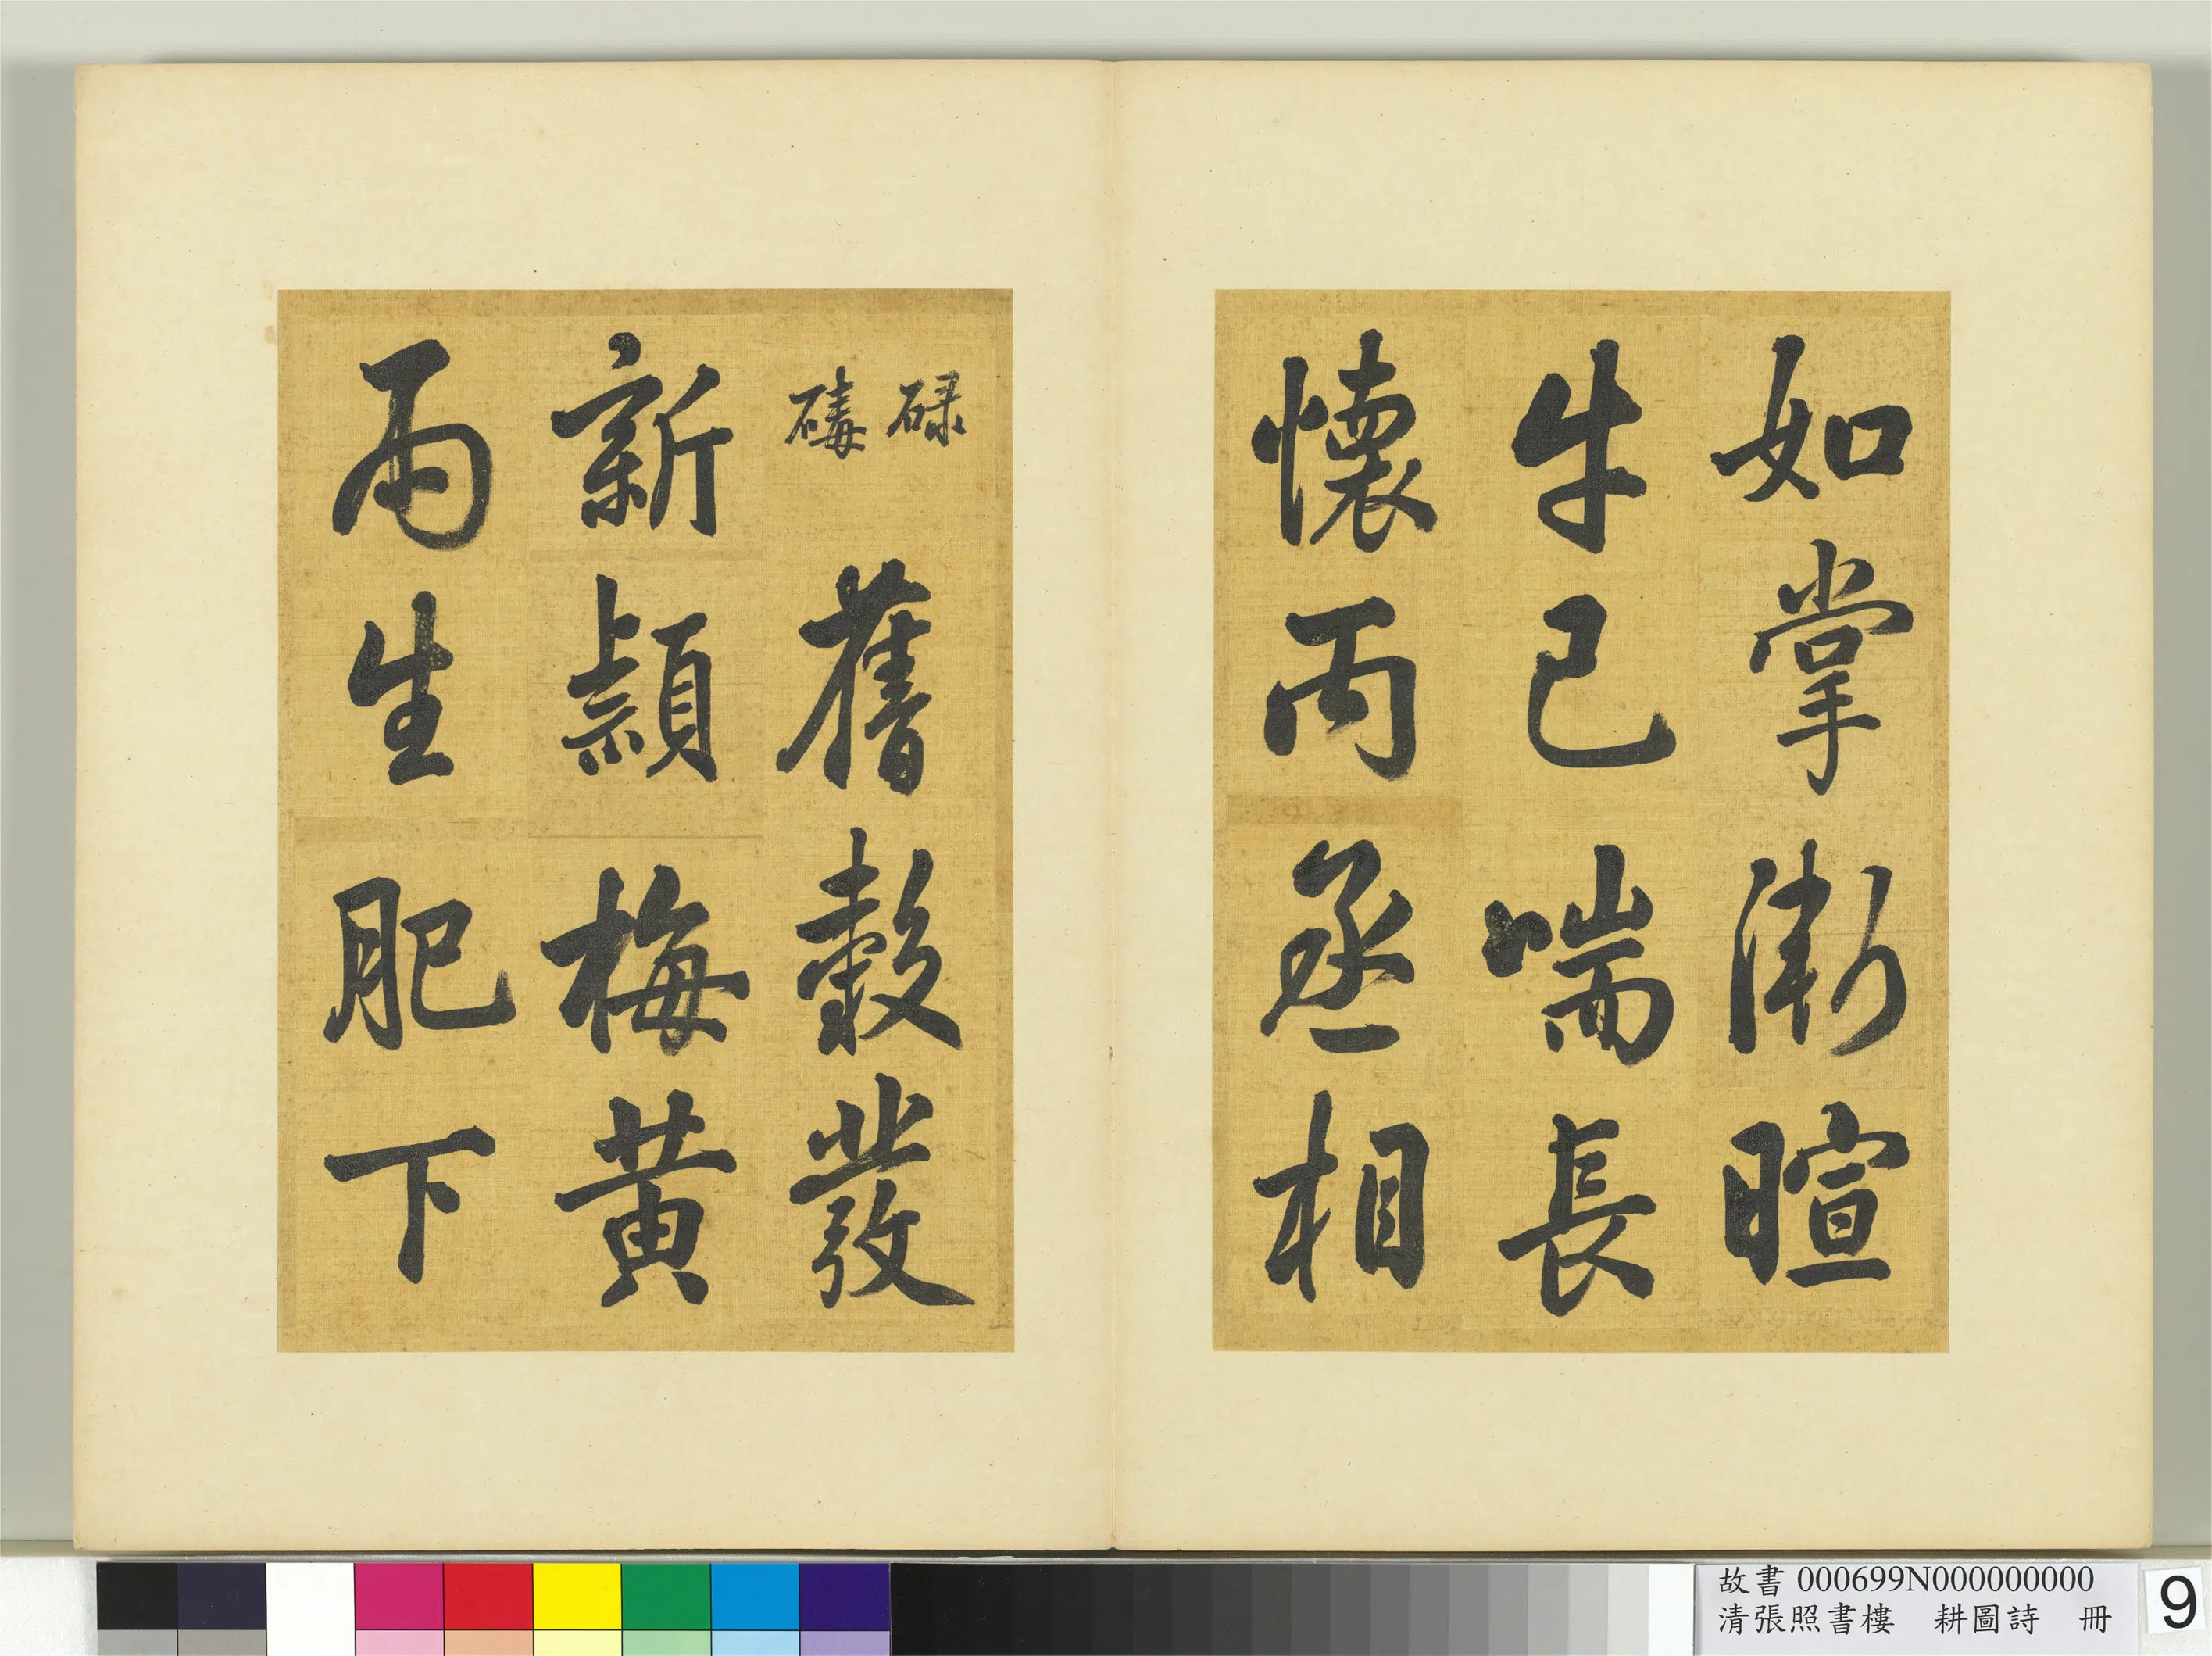 如掌漸暄
牛已喘長
懷丙丞相
碌
碡
舊穀發
新穎梅黃
雨生肥下
故書 000699N000000000
清張照書樓 耕圖詩 冊
9